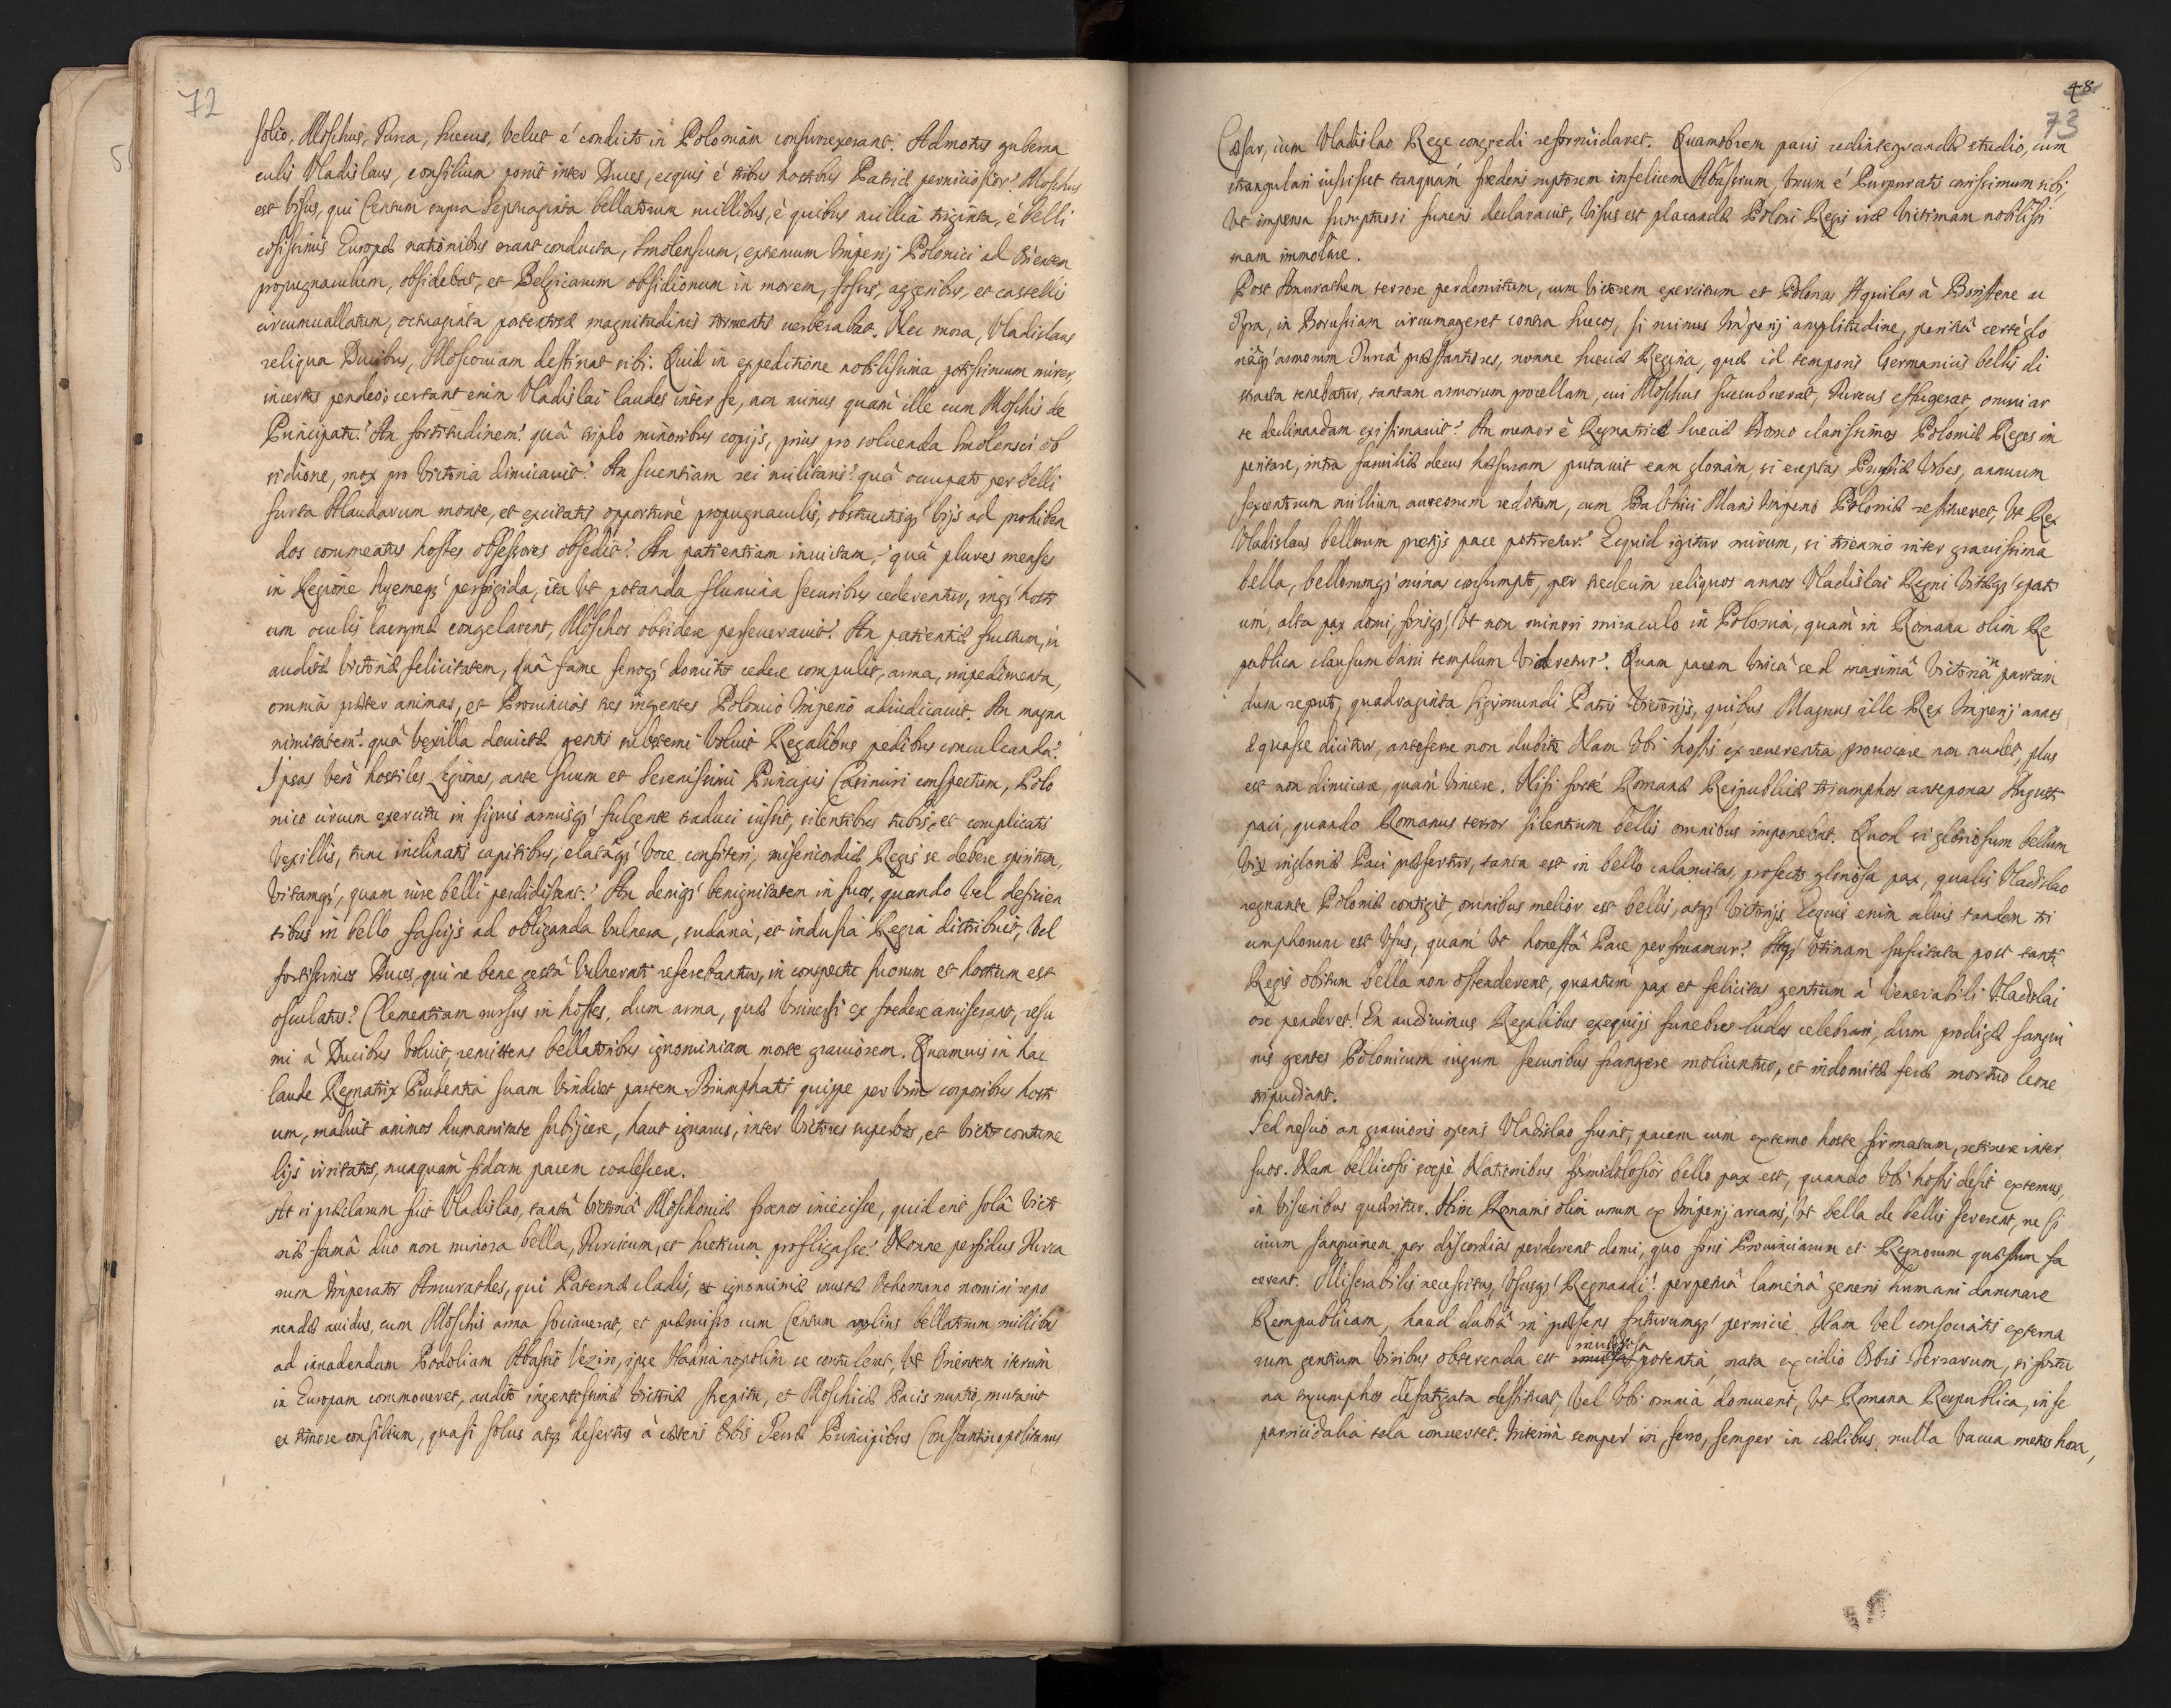 72
solio, Moschus, Turca, Suecus, velut è condicto in Poloniam consurrexerant. Admotus guberna
culis Vladislaus, consilium ponit inter Duces, ecquis è tribus hostibus Patriæ perniciosior? Moschus
est visus, qui Centum supra Septuaginta bellatorum millibus, è quibus millia triginta, è belli
cosissimis Europæ nationibus erant conducta, Smolenscum, extremum Imperij Polonici ad Orientem
propugnaculum, obsidebat, et Belgicarum obsidionum in morem, fossis, aggeribus, et castellis
circumuallatum, octuaginta portentosæ magnitudinis tormentis uerberabat. Nec mora, Vladislaus
reliqua Ducibus, Moscouiam destinat sibi. Quid in expeditione nobilissima potissimum mirer,
incertus pendeo; certant enim Vladislai laudes inter se, non minus quàm ille cum Moschis de
Principatu. An fortitudinem? quâ triplo minoribus copijs, prius pro soluenda Smolensci ob
sidione, mox pro Victoria dimicauit? An scientiam rei militaris? quâ occupato per belli
furta Blaudarum monte, et excitatis opportunè propugnaculis, obstructisq́ vijs ad prohiben
dos commeatus hostes, obsessores obsedit? An patientiam inuictam, quâ plures menses
in Regione hyemeq́ perfrigida, ita vt potanda flumina securibus cederentur, inq́ hosti
um oculis lacrymæ congelarent, Moschos obsidere perseuerauit? An patientiæ fructum, in
auditæ Victoriæ felicitatem, quâ fame ferroq́ domitos cedere compulit, arma, impedimenta,
omnia præter animas, et Prouincias tres ingentes Polonico Imperio adiudicauit. An magna
nimitatem? quâ vexilla deuictæ gentis substerni voluit Regalibus pedibus conculcanda?
Ipsas verò hostiles Legiones, ante suum et Serenissimi Principis Casimiri conspectum, Polo
nico circum exercitu in signis armisq́ fulgente traduci iussit, silentibus tubis, et complicatis
vexillis, tunc inclinatis capitibus, elatâq́ voce confiteri, misericordiæ Regis se debere spiritum,
vitamq́, quam iure belli perdidissent? An deniq́ benignitatem in suos, quando vel deficien
tibus in bello fascijs ad obliganda vulnera, sudaria, et indusia Regia distribuit, Vel
fortissimos Duces, qui re bene gestâ vulnerati referebantur, in conspectu suorum et hostium est
osculatus? Clementiam rursus in hostes, dum arma, quæ vniuersi ex foedere amiserant, resu
mi à Ducibus voluit, remittens bellatoribus ignominiam morte grauiorem. Quamuis in hac
laude Regnatrix Prudentia suam vindicet partem. Triumphatis quippe per vim corporibus hosti
um, maluit animos humanitate subijcere, haut ignarus, inter victores superbos, et victos contume
lijs irritatos, nunquàm fidam pacem coalescere.
At si præclarum fuit Vladislao, tantâ victoriâ Moschouiæ frænos iniecisse, quid erit solâ victo
riæ famâ duo non minora bella, Turcicum, et Sueticum profligasse? Nonne perfidus Turca
rum Imperator Amurathes, qui Paternæ cladis, et ignominiæ inustæ Othomano nomini repo
nendæ auidus, cum Moschis arma sociauerat, et præmisso cum Centum amplius bellatorum millibus
ad inuadendam Podoliam Abassio Vezir, ipse Hadrianopolim se contulerat, vt Orientem iterùm
in Europam commoueret, audito ingentissimæ victoriæ strepitu, et Moschicæ Pacis nuntio, mutauit
ex timore consilium, quasi solus atq́ desertus à cæteris Orbis Terræ Principibus Constantinopolitanus
48
73
Cæsar, cum Vladislao Rege congredi reformidaret. Quamobrem pacis redintegrandæ studio, cum
strangulari iussisset tanquam foederis ruptorem infelicem Abasserum, vnum è Purpuratis carissimum sibi,
vt impensa sumptuosi funeris declarauit, visus est placandæ Poloni Regis iræ victimam nobilissi
mam immolare.
Post Amurathem terrore perdomitum, cum victorem exercitum et Polonas Aquilas à Boristene ac
Tyra, in Borussiam circumageret contra Suecos, si minus Imperij amplitudine, peritiâ certè glo
riâq́ armorum Turcâ præstantiores, nonne Sueciæ Regina, quæ id temporis Germanicis bellis di
stracta tenebatur, tantam armorum procellam, cui Moschus succubuerat, Turcus effugerat, omni ar
te declinandam existimauit? An memor è Regnatrice Sueciæ Domo clarissimos Poloniæ Reges im
peritare, intra familiæ decus hæsuram putauit eam gloriam, si ereptas Prussiæ Vrbes, annuum
sexcentorum millium aureorum reditum, cum Balthici Maris Imperio Poloniæ restitueret, vt Rex
Vladislaus bellorum pretijs pace potiretur? Ecquid igitur mirum, si triennio inter grauissima
bella, bellorumq́ minas consumpto, per tredecim reliquos annos Vladislai Regni vitæq́ spati
um, alta pax domi, forisq́, vt non minori miraculo in Polonia, quàm in Romana olim Re
publica clausum Iani templum videretur? Quam pacem vnicâ sed maximâ victoriâ partam
dum reputo, quadraginta Sigismundi Patris victorijs, quibus Magnus ille Rex Imperij annos
æquasse dicitur, anteferre non dubito. Nam vbi hostis ex reuerentia prouocare non audet, plus
est non dimicare, quàm vincere. Nisi fortè Romanæ Reipublicæ triumphos anteponas Augusti
paci, quando Romanus terror silentium bellis omnibus imponebat. Quod si gloriosum bellum
vix ingloriæ Paci præfertur, tanta est in bello calamitas, profecto gloriosa pax, qualis Vladislao
regnante Poloniæ contigit, omnibus melior est bellis, atq́ victorijs. Ecquis enim alius tandem tri
umphorum est vsus, quàm vt honestâ Pace perfruamur? Atq́ vtinam suscitata post tanti
Regis obitum bella non ostenderent, quantum pax et felicitas gentium à venerabili Vladislai
ore penderet! En audiuimus Regalibus exequijs funebres ludos celebrari, dum prodigæ sangui
nis gentes Polonicum iugum securibus frangere moliuntur, et indomitæ feræ mortuo leone
tripudiant.
Sed nescio an grauioris operis Vladislao fuerit, pacem cum externo hoste firmatam, retinere inter
suos. Nam bellicosis sæpè Nationibus formidolosior bello pax est, quando vbi hostis desit externus,
in visceribus quæritur. Hinc Romanis olim unum ex Imperij arcanis, vt bella de bellis sererent, ne ci
uium sanguinem per discordias perderent domi, quo foris Prouinciarum et Regnorum quæstum fa
cerent. Miserabilis necessitas, vsusq́ Regnandi! perpetuâ lanienâ generis humani damnare
Rempublicam, haud dubiâ in præsens futurumq́ pernicie. Nam vel consociatis externa
rum gentium viribus obterenda est inuidiosa potentia, nata excidio Orbis Terrarum, si fortu
na tryumphos defatigata destituat, vel vbi omnia domuerit, vt Romana Respublica, in se
parricidalia tela conuertet. Interim semper in ferro, semper in cædibus, nulla vacua metus hora,